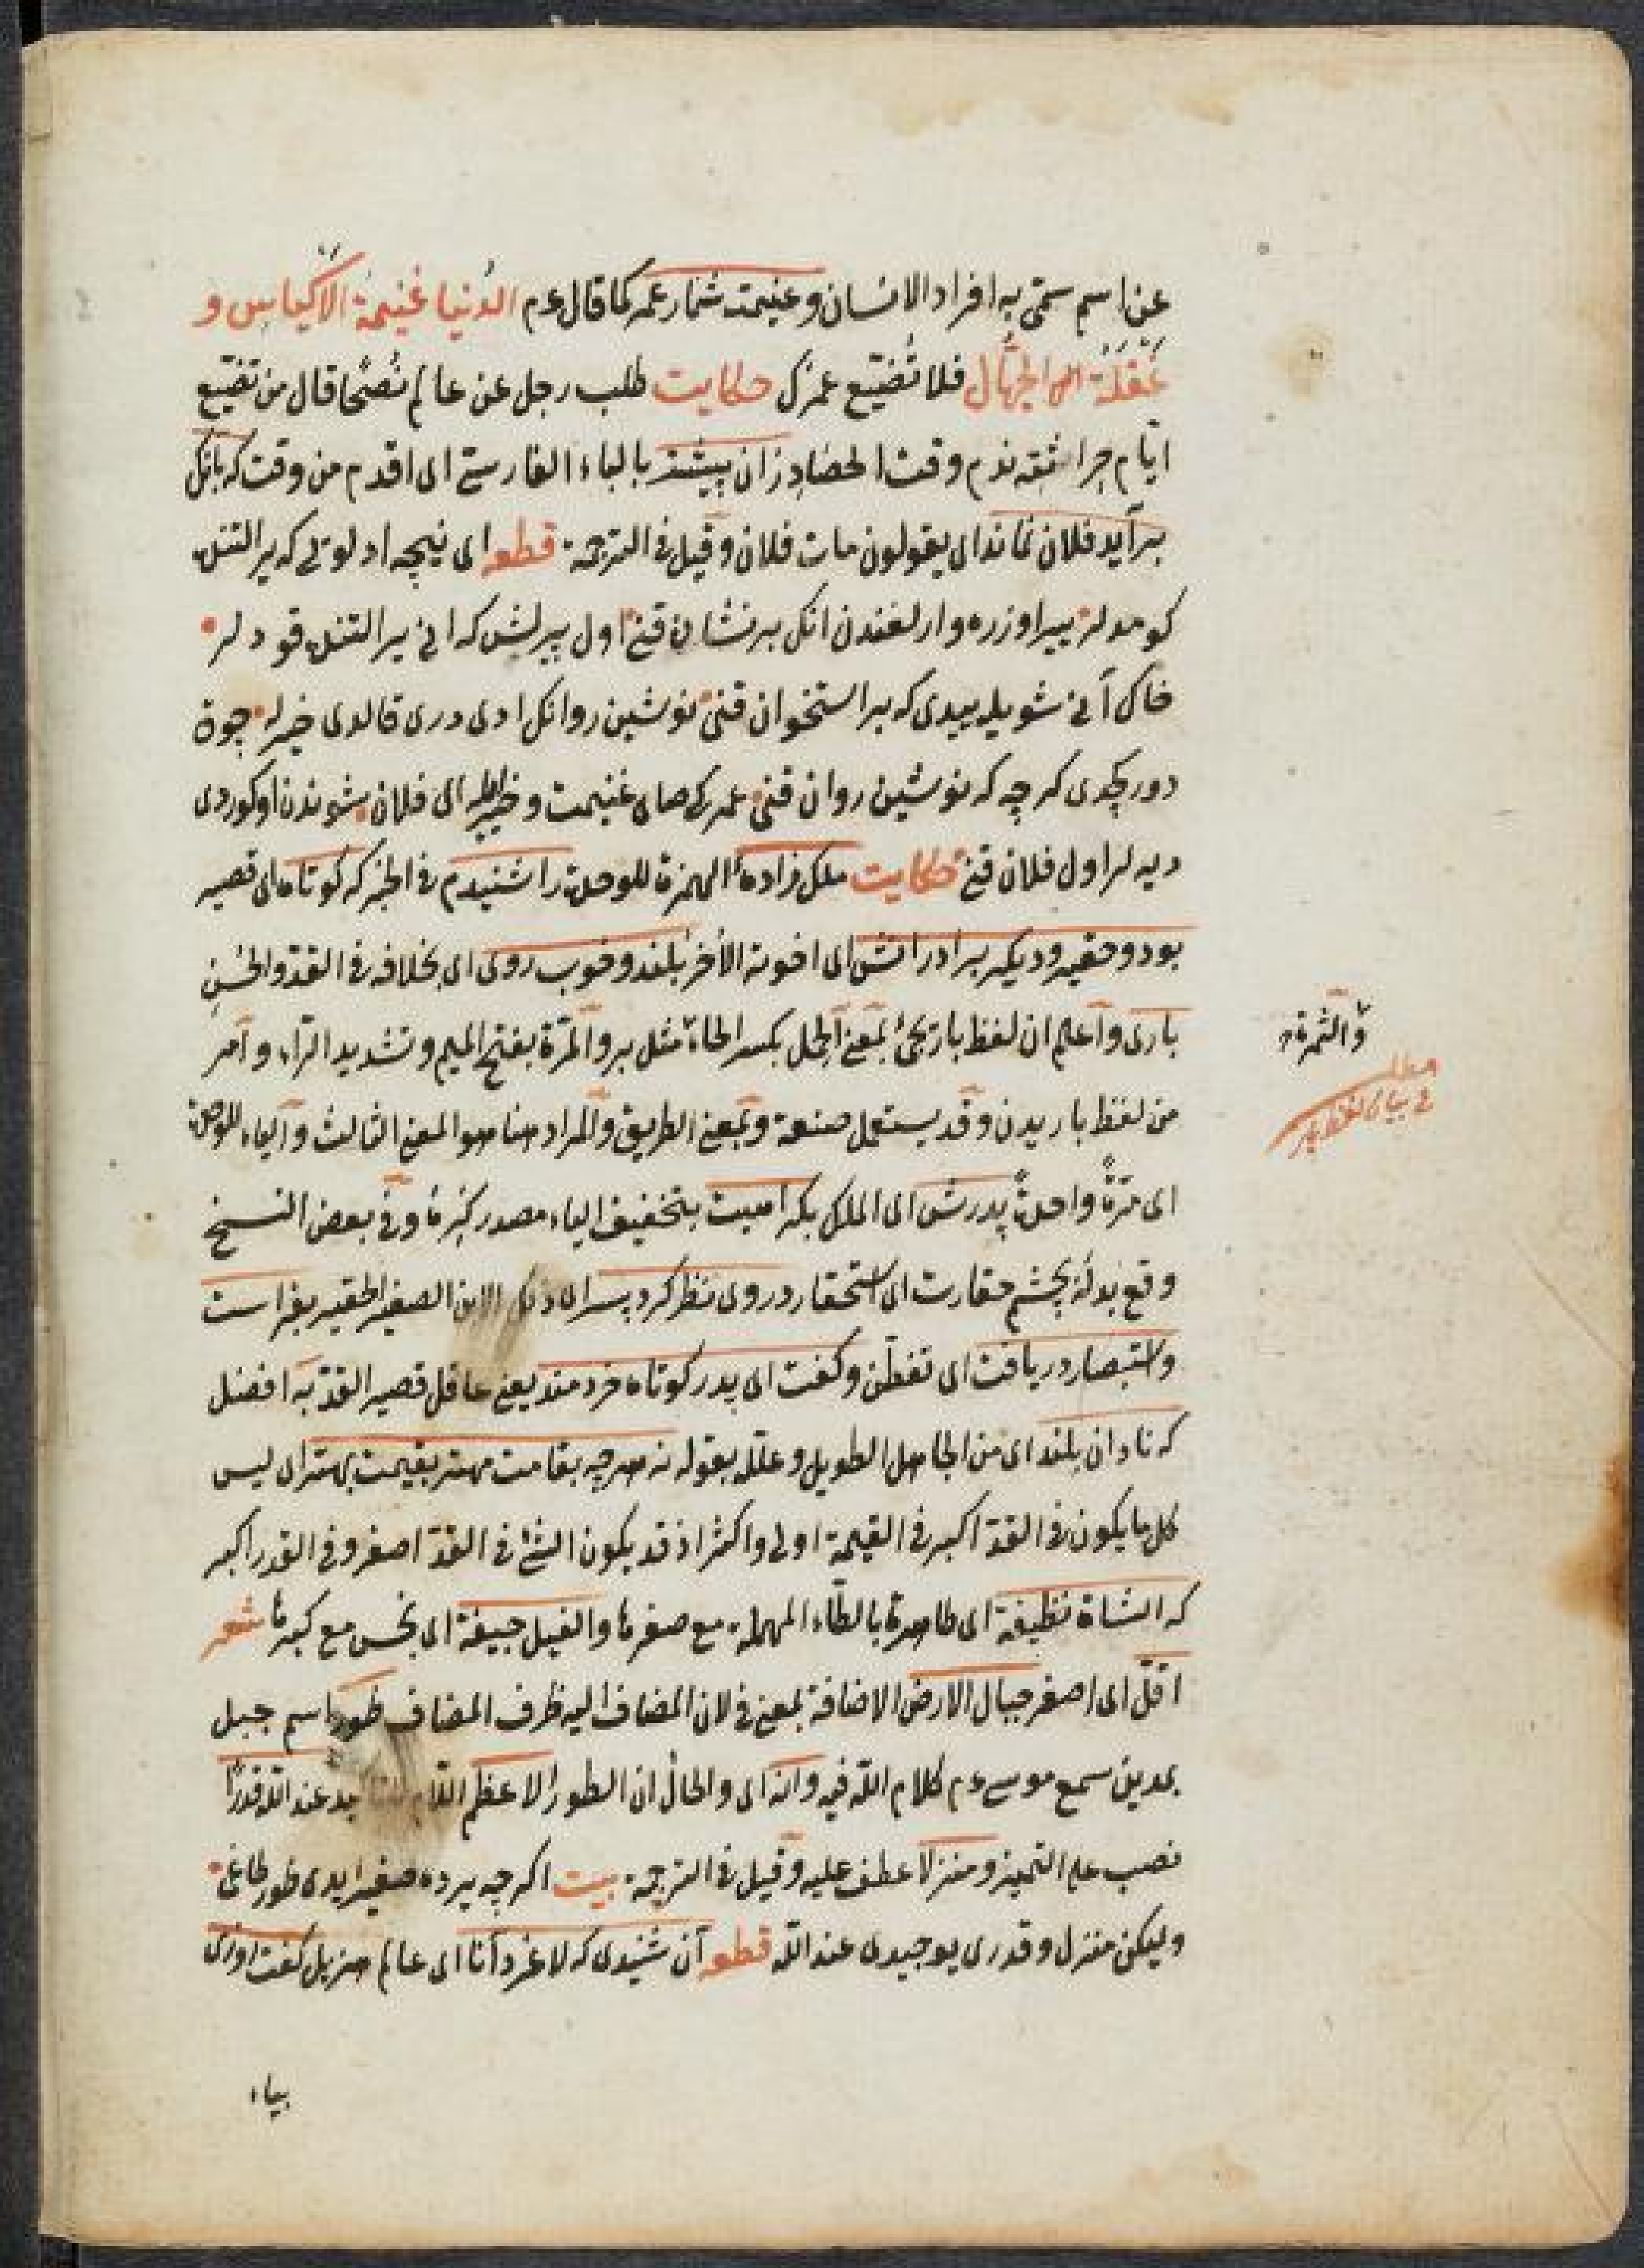 عن اسم سمّى به افراد الانسان وغنيمت شمار عمر كما قال عم الدُنيا غنيمة الاكياس و
غفلة الجهّال فلا تُضيّع عمرك حكايت طلب رجل عن عالم نُصحًا قال من تضيّع
ايّام حراثته ندم وقت الحصاد زان پيشتر بالباء الفارسيّ اى اقدم من وقت كه بانك
برآيد فلان نماند اى يقولون مات فلان وقيل فى الترجمة قطعه اى نيجه اولولرى كه ير التنه
كومدلر يير اوزره وارلغندن انك بر نشان قنى اول پير لش كه انى ير التنه قودلر
خاك آنى شويله ييدى كه بر استخوان قنى نوشين روانك ادى درى قالدى خيرله چوق
دور كچدى كرچه كه نوشين روان قنى عمرك صاى غنيمت وخير ايله اى فلان شوندن اوكوردى
ديه لر اول فلان قنى حكايت ملك زادهٔ الهمزة للوحدة را شنيدم فى الخبر كه كوتاه اى قصير
بود وحقير وديكر برادرانش اى اخوته الأخر بلند وخوب روى اى بخلافه فى القدّ والحُسنِ
بارى واعلم ان لفظ بار يجئ بمعنى الحمل بكسر الحاء مثل بر والمرّة بفتح الميم وتشديد الرّاء وامر
من لفظ باريدن وقد يستعمل صنعة وبمعنى الطريق والمراد هنا هو المعنى الثالث والياء للوحدة
اى مرّةً واحدةً پدرش اى الملك بكراهيت بتخفيف الياء مصدر كَرِهَ وفى بعض النسخ
وقع بدله بچشم حقارت اى استحقار در وى نظر كرد پسر اى ذلك الابن الصغير الحقير بفراست
واستبصار دريافت اى تفطّن وكفت اى پدر كوتاه خردمند يعنى عاقل قصير القدّ به افضل
كه نادان بلند اى من الجاهل الطويل وعلله بقوله نه هرچه بقامت مهتر بقيمت بهتر اى ليس
كل ما يكون فى القدّ اكبر فى القيمة اولى واكثر اذ قد يكون الشئ فى القدّ اصغر وفى القدر اكبر
كه الشاة نظيفة اى طاهرة بالطّاء المهملة مع صغرها والفيل جيفة اى نجس مع كبرها شعر
اقلّ اى اصغر جبال الارض الاضافة بمعنى فى لان المضاف اليه ظرف المضاف طور اسم جبل
بمدين سمع موسى عم كلام الله فيه وانه اى والحال ان الطور لاعظم اللام للتاكيد عند الله قدرًا
نصب على التمييز ومنزلا عطف عليه وقيل فى الترجمة بيت اكرچه يرده صغير ايدى طور طاغى
وليكن منزل وقدرى يوجيدى عند الله قطعه آن شنيدى كه لاغر دانا اى عالم هزيل كفت روزى
وّالثمرة
مطلب
فى بيان لفظ بار
بياء